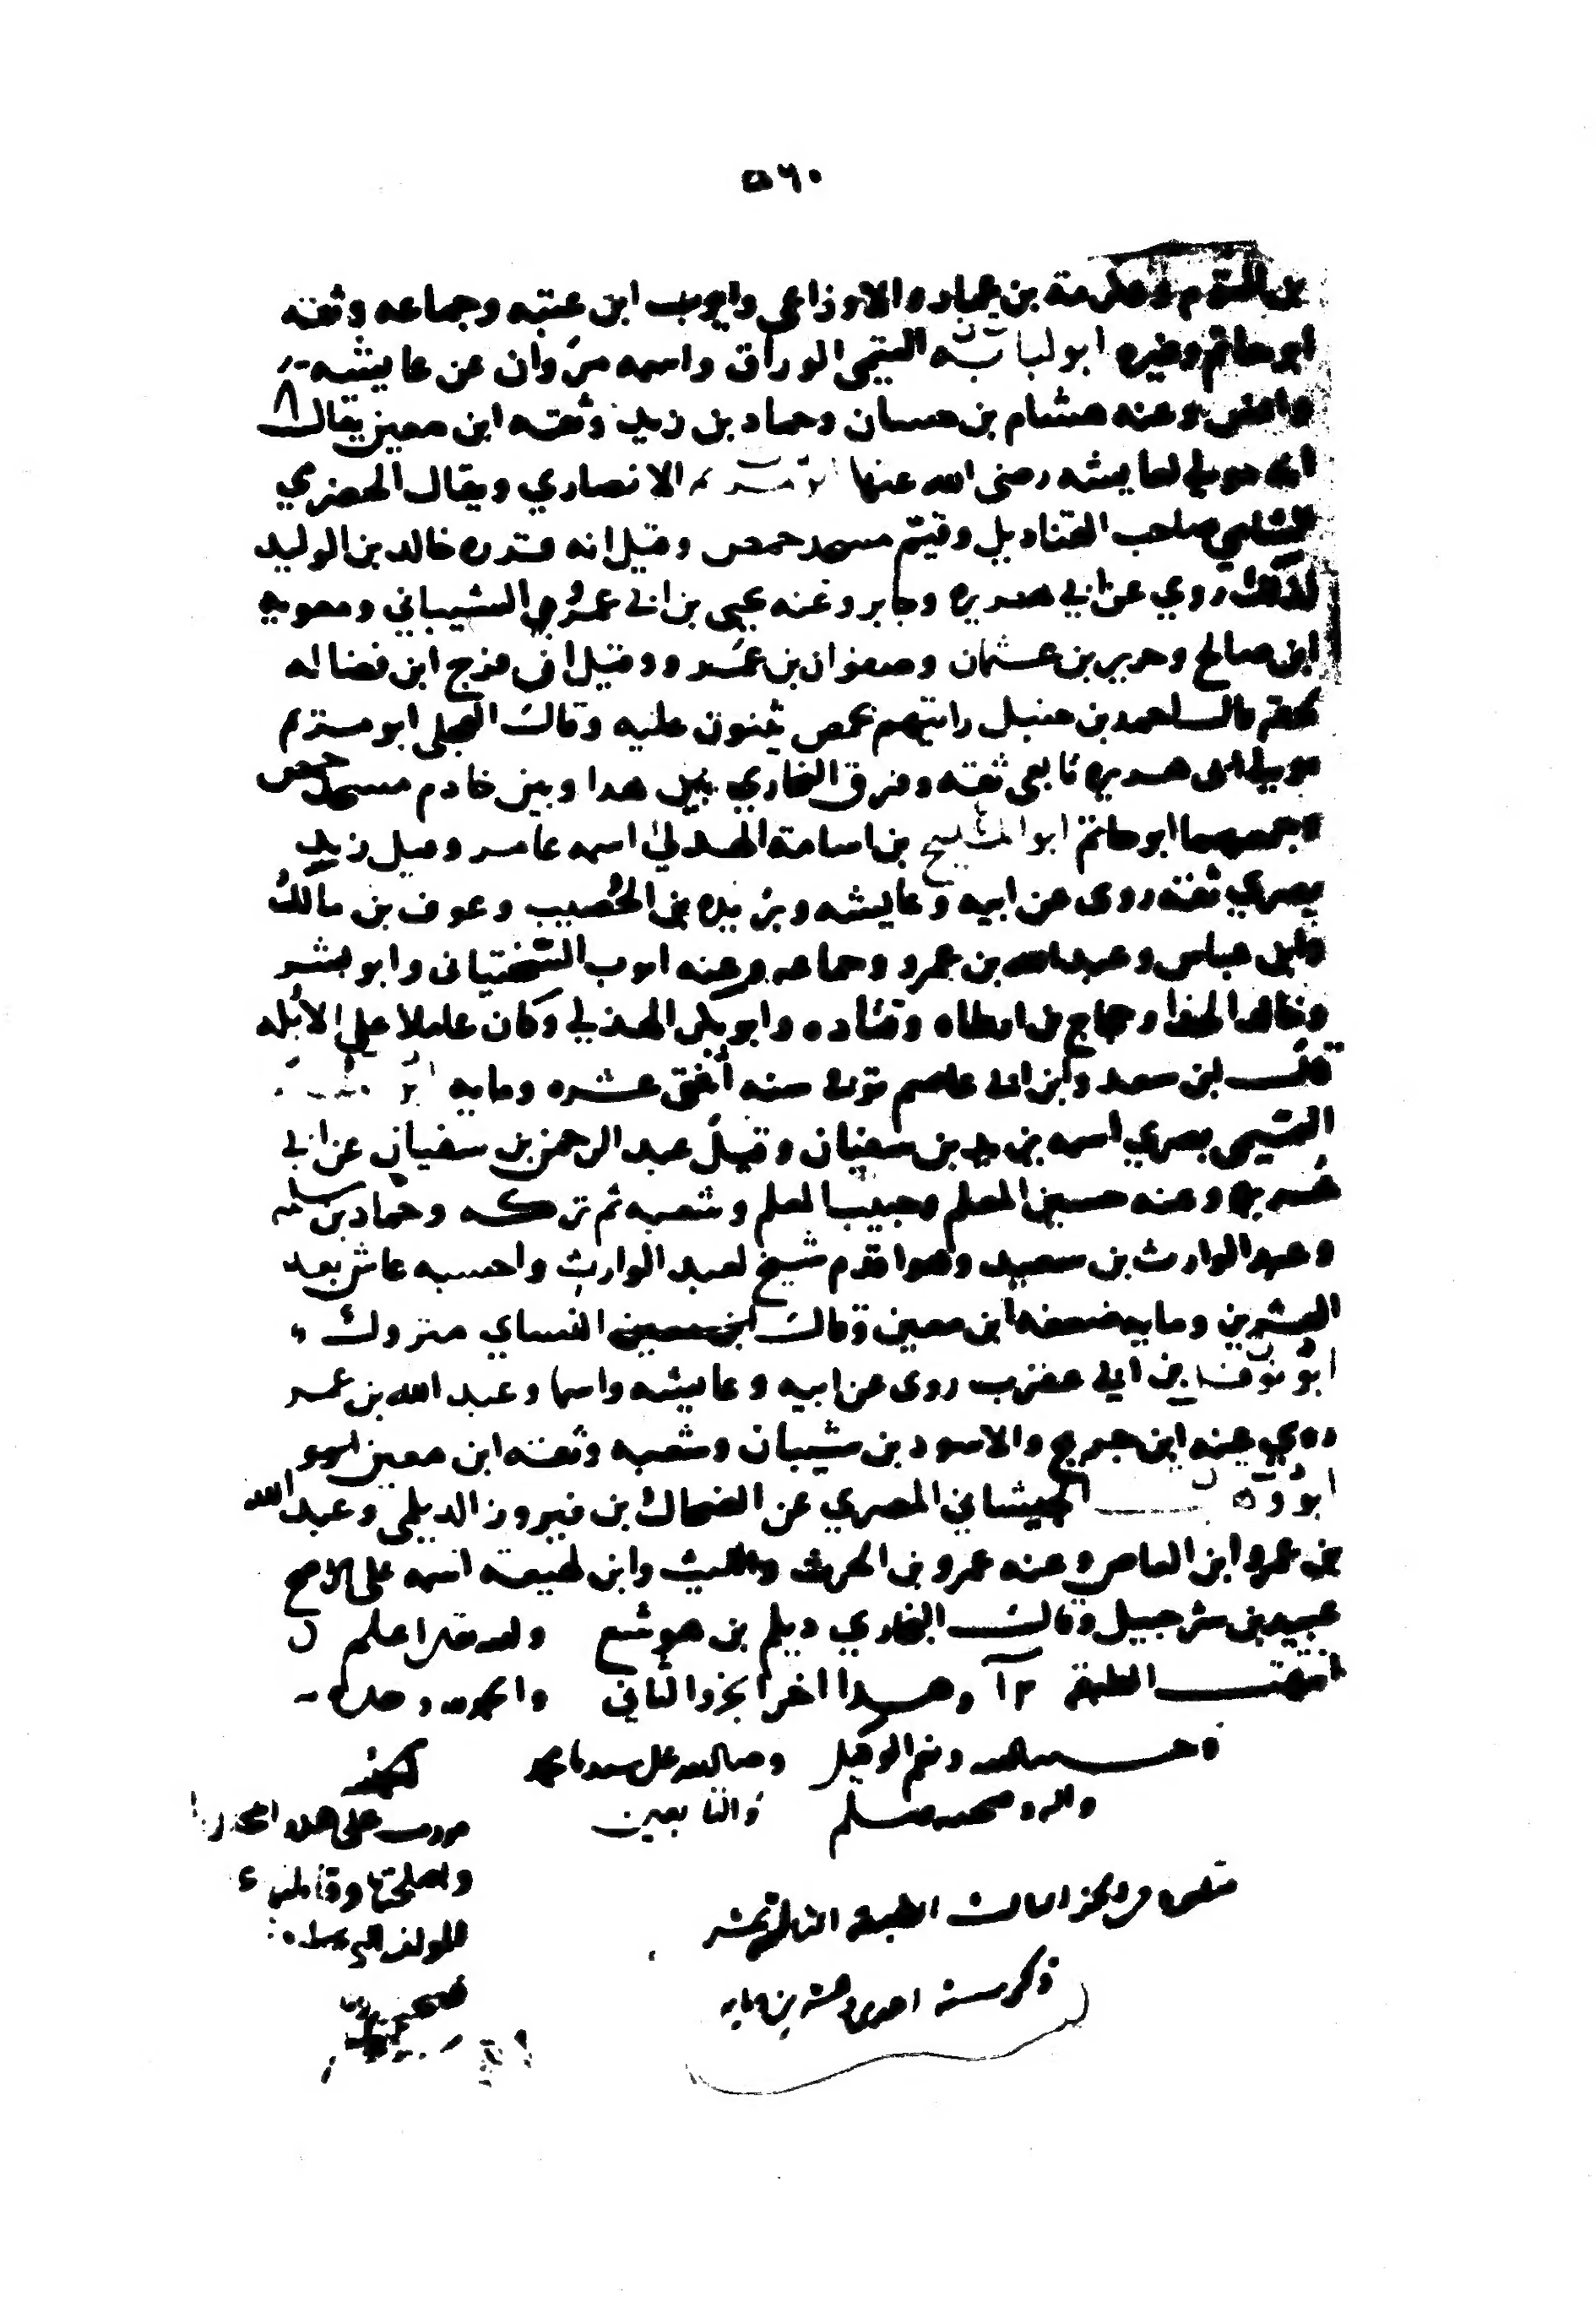 ٥٦٠
وعكرمة بن عمار والاوزاعي وايوب ابن عتبه وجماعه وثقه
ابو حاتم وغيره ابو لبابة التيمي الوراق واسمه مروان عن عايشه
وانس وعنه هشام بن حسان وحماد بن زيد وثقه ابن معين يقال
انه مولي لعايشه رضي الله عنها الانصاري ويقال الحضرمي
الشامي صاحب القناديل وقيّم مسجد حمص وقيل انه خالد بن الوليد
لذلك روي عن ابي هريره وجابر وعنه يحيى بن ابي عمرو الشيباني ومعويه
ابن صالح وحريز بن عثمان وصفوان بن عمرو وقيل ان فرج ابن فضاله
قال احمد بن حنبل رايتهم بحمص يثنون عليه وقال العجلي ابو مريم
مولي ابي هريره تابعي ثقه وفرق البخاري بين هدا وبين خادم مسجد حمص
وجمعهما ابو حاتم ابو المليح بن اسامة الهدلي اسمه عامر وقيل زيد
بصري ثقه روى عن ابيه وعايشه وبريده بن الحُصيب وعوف بن مالك
وابن عباس وعبد الله بن عمرو وجماعه وعنه ايوب السختياني وابو بشر
وخالد الحذا وحجاج بن ارطاه وقتاده وابو بكر الهذلي وكان عاملا علي الأبله
قال ابن سعد وابن ابي عاصم توفي سنه اثنتي عشره ومايه
التميمي بصري اسمه يزيد بن سفيان وقيل عبد الرحمن بن سفيان عن ابي
هريره وعنه حسين المعلم وحبيب المعلم وشعبه ثم تركه وحماد بن سلمه
وعبد الوارث بن سعيد وهو اقدم شيخ لعبد الوارث واحسبه عاش بعد
العشرين ومايه ضعفه ابن معين وقال ابن معين النساي متروك
ابو نوفل بن ابي عقرب روى عن ابيه وعايشه واسما وعبد الله بن عمر
روي عنه ابن جريج والاسود بن شيبان وشعبه وثقه ابن معين
ابو وهب الجيشاني المصري عن الضحاك بن فيروز الديلمي وعبد الله
بن عمرو ابن العاص وعنه عمرو بن الحرث والليث وابن لهيعه اسمه على الاصح
عبيد بن شرحبيل وقال البخاري ديلم بن هوشع والله اعلم
انتهت الطبقة ١٢ وهدا اخر الجزو الثاني والحمد لله وحده
وحسبنا الله ونعم الوكيل وصلى الله على سيدنا محمد
واله وصحبه وسلم والتابعين
يتلوه في الجزء الثالث الطبقة الثالثة عشر
ذكر سنة احدى وعشرين ومايه